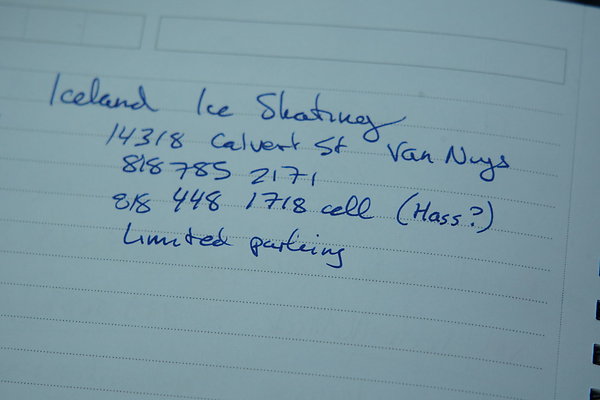 Iceland Ice Skating
14318 Calvert St Van Nuys
818 785 2171
818 448 1718 cell (Hass?)
Limited parking